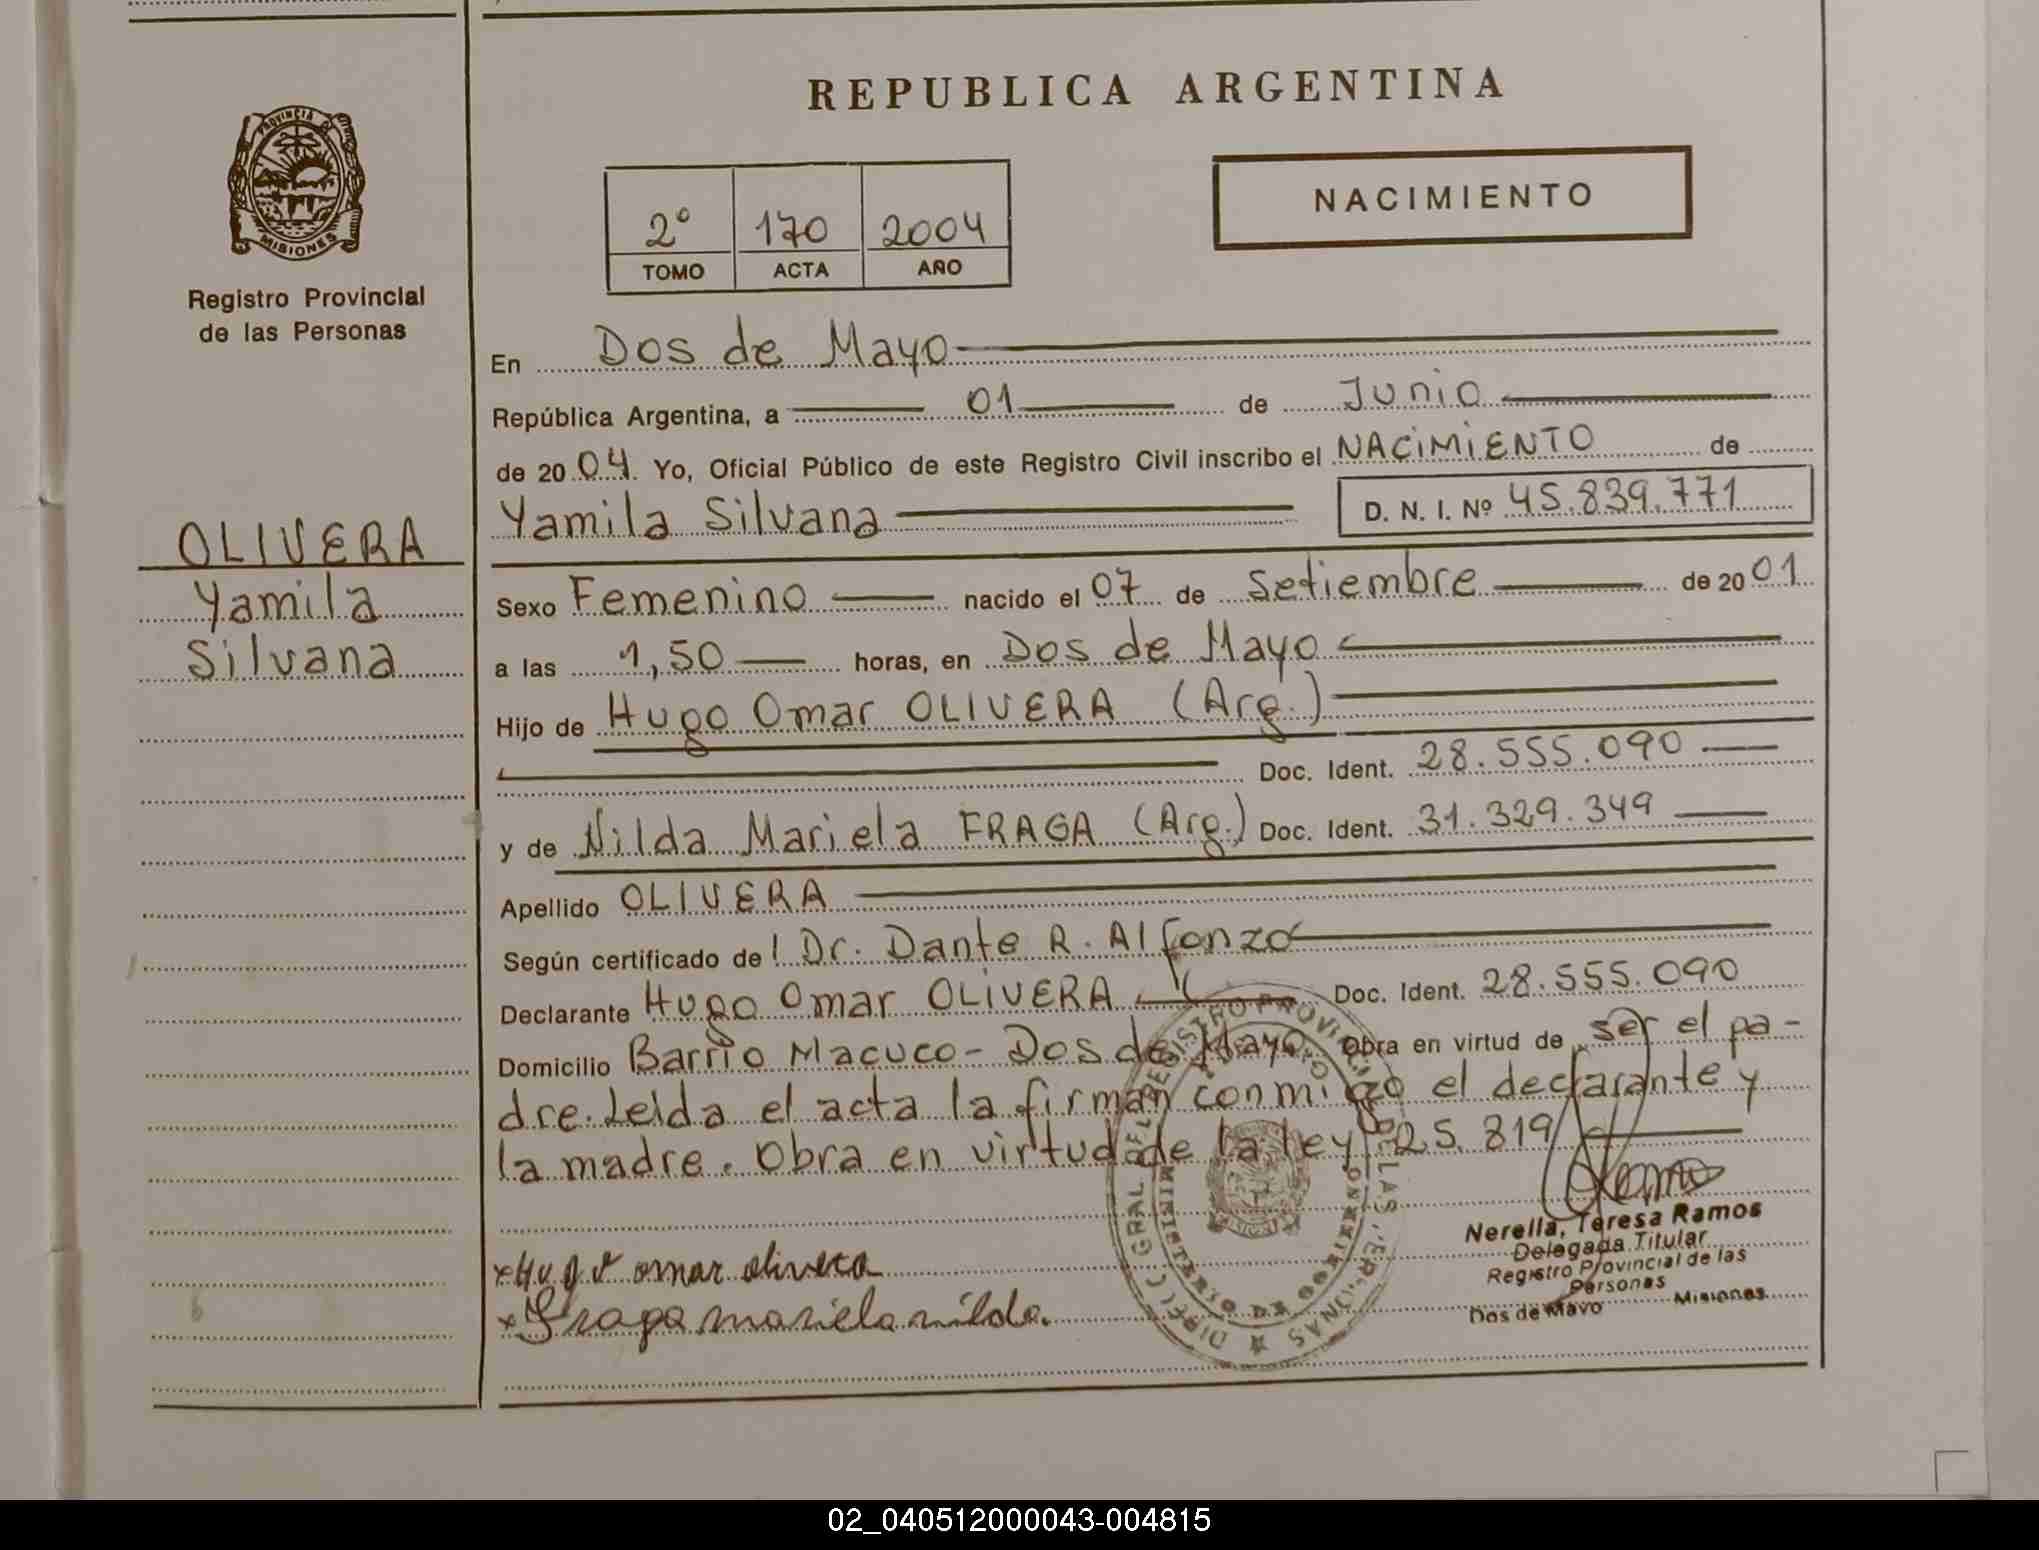 REPUBLICA ARGENTINA
PROVINCIA DE
MISIONES
Registro Provincial
de las Personas
NACIMIENTO
2º 170 2004
TOMO ACTA AÑO
En Dos de Mayo
República Argentina, a 01 de Junio
de 2004. Yo, Oficial Público de este Registro Civil inscribo el NACIMIENTO de
Yamila Silvana D. N. I. Nº 45.839.771
OLIVERA
Yamila
Silvana
Sexo Femenino nacido el 07 de Setiembre de 2001
a las 1,50 horas, en Dos de Mayo
Hijo de Hugo Omar OLIVERA (Arg.)
Doc. Ident. 28.555.090
y de Nilda Mariela FRAGA (Arg.) Doc. Ident. 31.329.349
Apellido OLIVERA
Según certificado de Dr. Dante R. Alfonzo
Declarante Hugo Omar OLIVERA Doc. Ident. 28.555.090
Domicilio Barrio Macuco- Dos de Mayo Obra en virtud de ser el pa-
dre. Leida el acta la firman conmigo el declarante y
la madre. Obra en virtud de la ley 25.819
x Hugo omar olivera
x Fraga mariela nilda.
Nerella, Teresa Ramos
Delegada Titular
Registro Provincial de las
Personas
Dos de Mayo Misiones
02_040512000043-004815